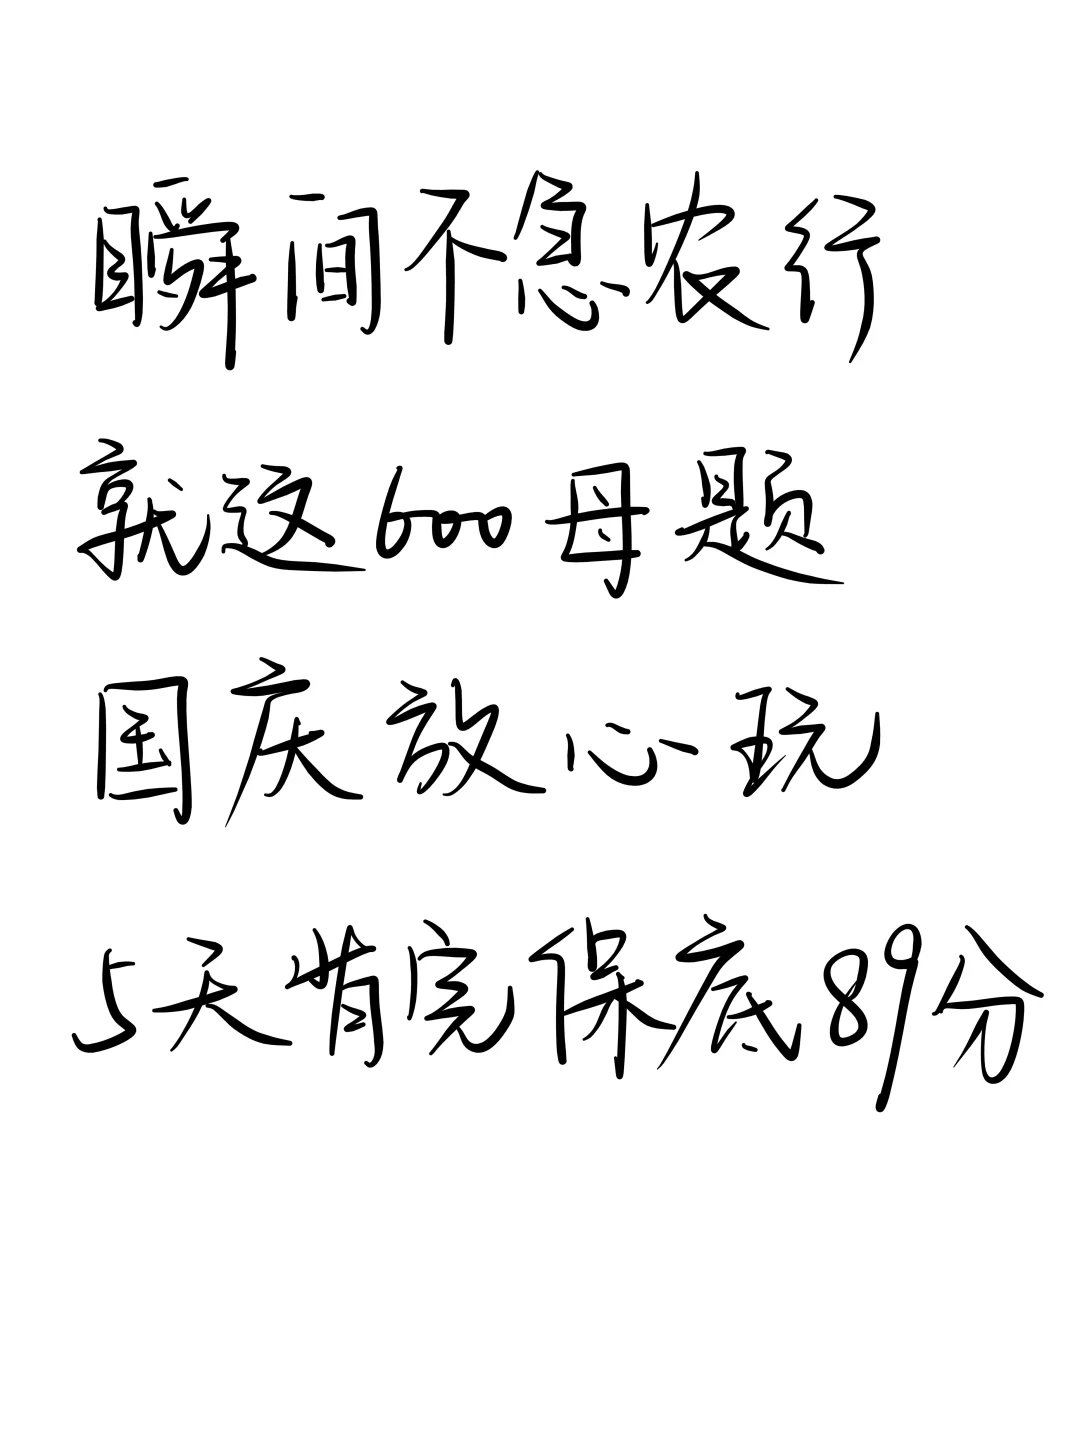 瞬间不急农行
就这600母题
国庆放心玩
5天背完保底89分